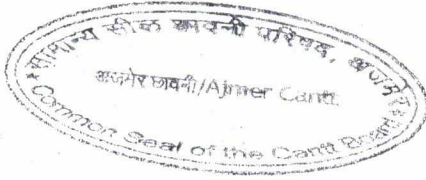 सामान्य सील छावनी परिषद, अजमेर
अजमेर छावनी/Ajmer Cantt.
Common Seal of the Cantt Board